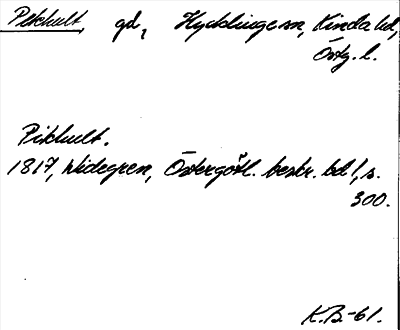 Pekhult gd, Hycklinge sn, Kinda hd,
Östg. l.
Pikhult.
1817, Widegren, Östergötl. beskr. bd 1, s.
300.
K.B.-61.